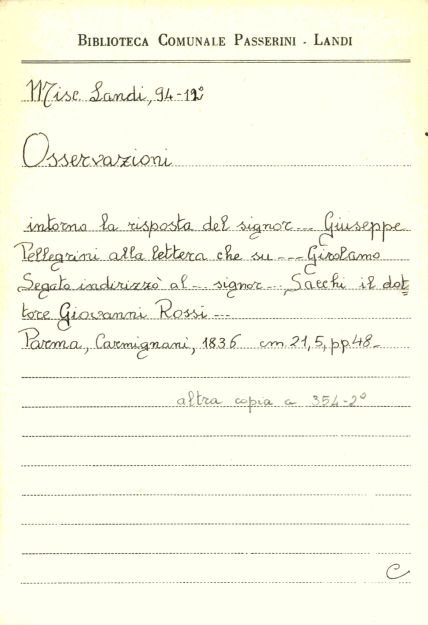 BIBLIOTECA COMUNALE PASSERINI - LANDI
Misc Landi, 94-12°
Osservazioni
intorno la risposta del signor --- Giuseppe
Pellegrini alla lettera che su --- Girolamo
Segato indirizzò al --- signor ---, Sacchi il dot=
tore Giovanni Rossi ---
Parma, Carmignani, 1836 cm 21,5, pp 48-
altra copia a 354-2°
C